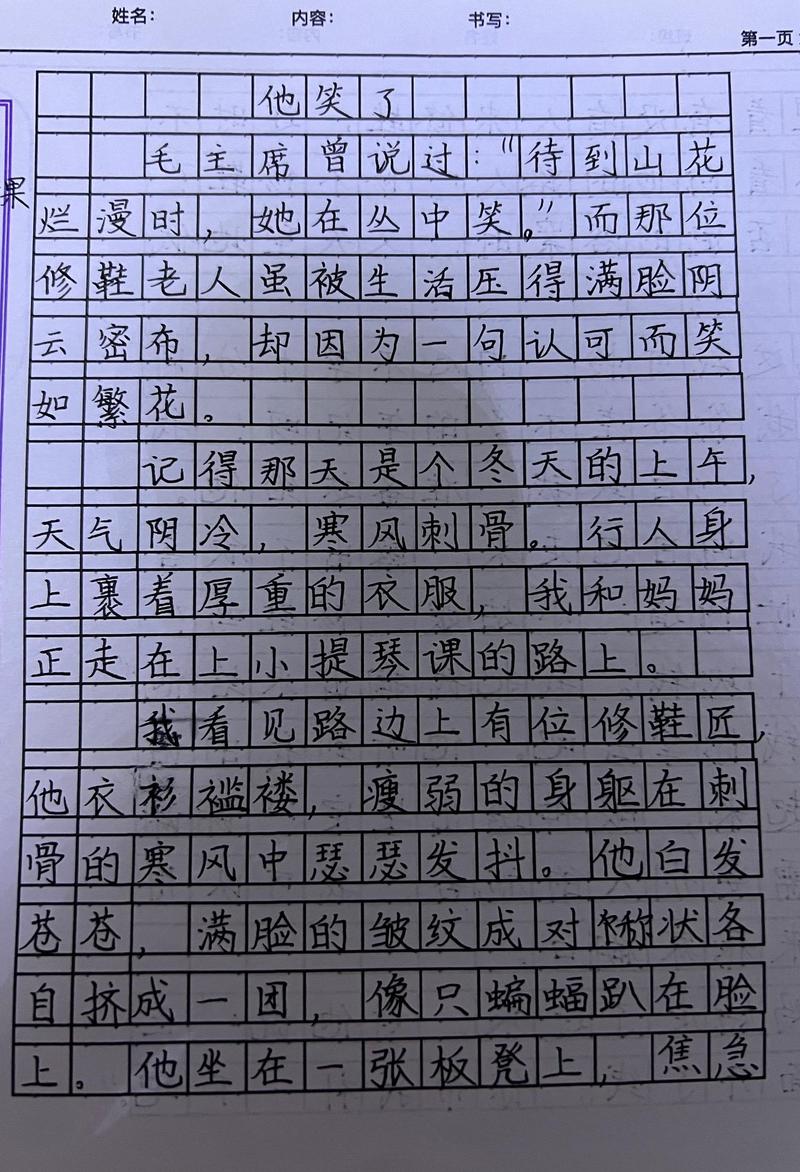 姓名: 内容: 书写:
第一页
果
他笑了
毛主席曾说过：“待到山花
烂漫时，她在丛中笑。”而那位
修鞋老人虽被生活压得满脸阴
云密布，却因为一句认可而笑
如繁花。
记得那天是个冬天的上午，
天气阴冷，寒风刺骨。行人身
上裹着厚重的衣服，我和妈妈
正走在上小提琴课的路上。
我看见路边上有位修鞋匠，
他衣衫褴褛，瘦弱的身躯在刺
骨的寒风中瑟瑟发抖。他白发
苍苍，满脸的皱纹成对称状各
自挤成一团，像只蝙蝠趴在脸
上。他坐在一张板凳上，焦急